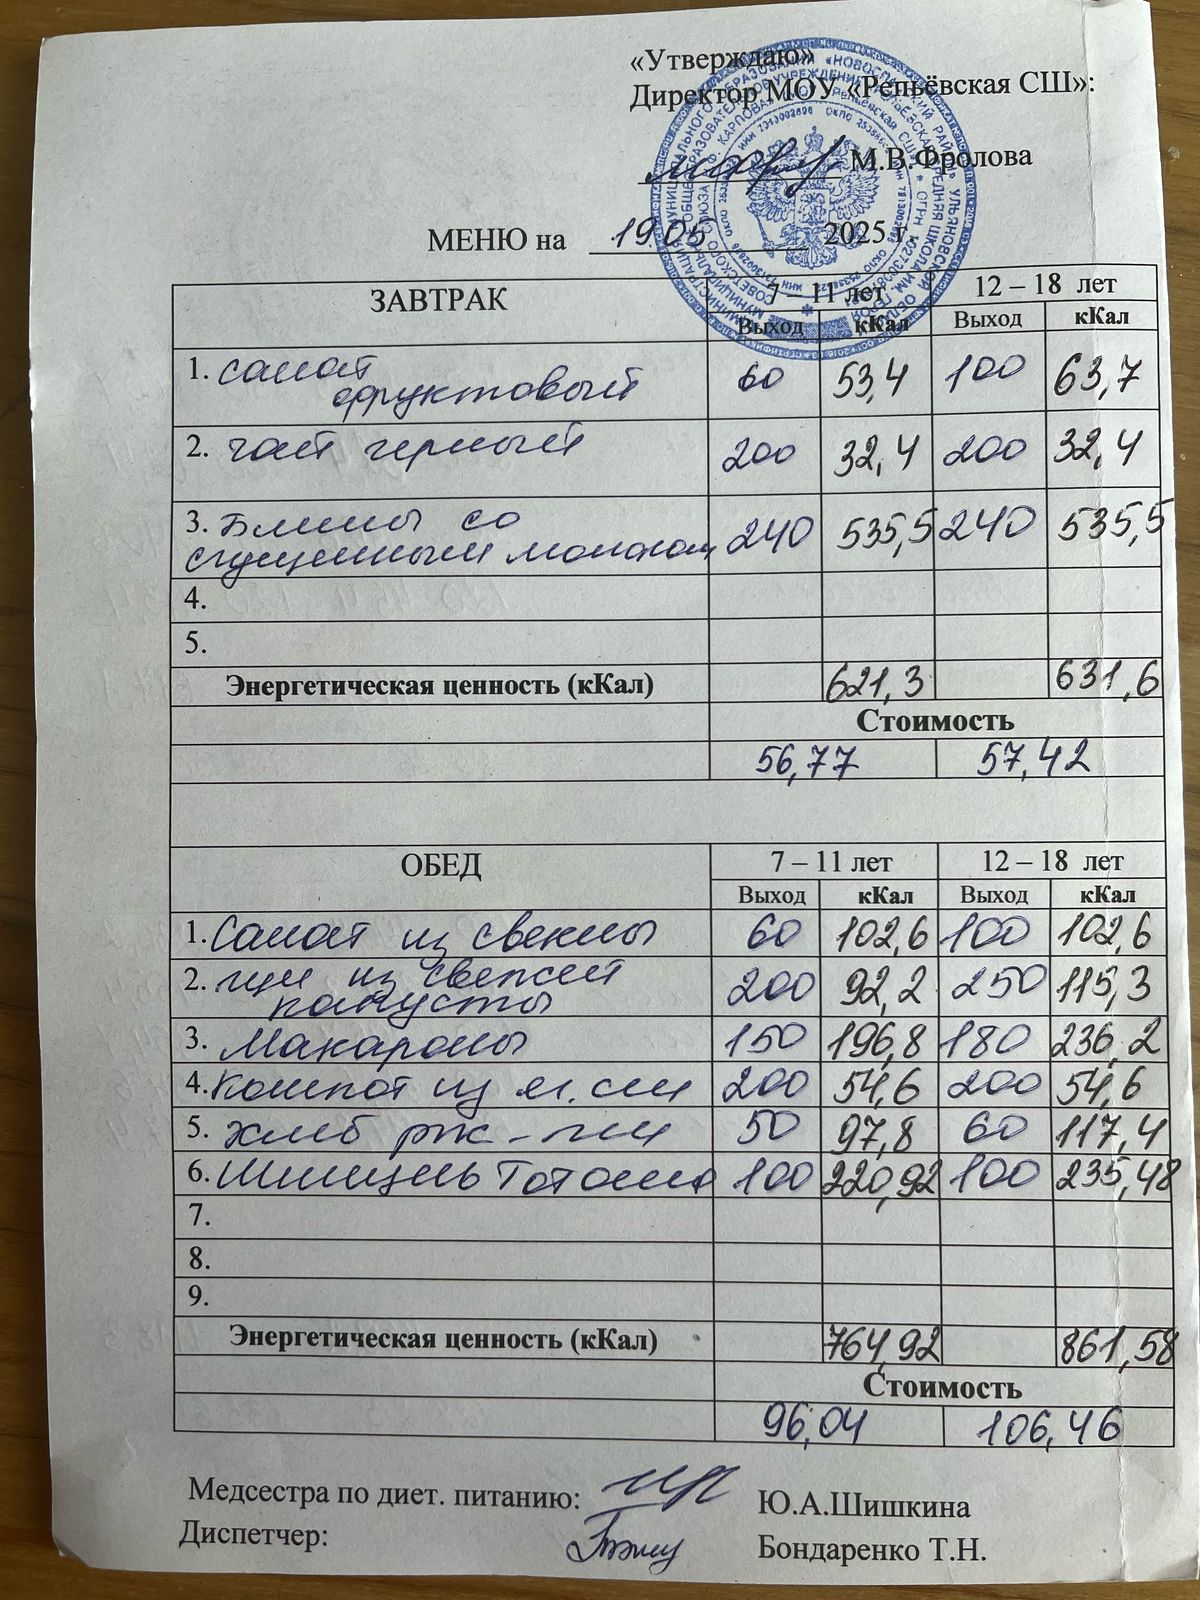 «Утверждаю»
Директор МОУ «Репьёвская СШ»:
М.В.Фролова
МЕНЮ на 19.05 2025 г
ЗАВТРАК 7 – 11 лет 12 – 18 лет
Выход кКал Выход кКал
1. салат
фруктовый 60 53,4 100 63,7
2. чай черный 200 32,4 200 32,4
3. Блины со
сгущенным молоком 240 535,5 240 535,5
4.
5.
Энергетическая ценность (кКал) 621,3 631,6
Стоимость
56,77 57,42
ОБЕД 7 – 11 лет 12 – 18 лет
Выход кКал Выход кКал
1. Салат из свеклы 60 102,6 100 102,6
2. щи из свежей
капусты 200 92,2 250 115,3
3. Макароны 150 196,8 180 236,2
4. Компот из 200 54,6 200 54,6
5. хлеб рж-пш 50 97,8 60 117,4
6. Шницель 100 220,92 100 235,48
7.
8.
9.
Энергетическая ценность (кКал) 764,92 861,58
Стоимость
96,04 106,46
Медсестра по диет. питанию: Ю.А.Шишкина
Диспетчер: Бондаренко Т.Н.